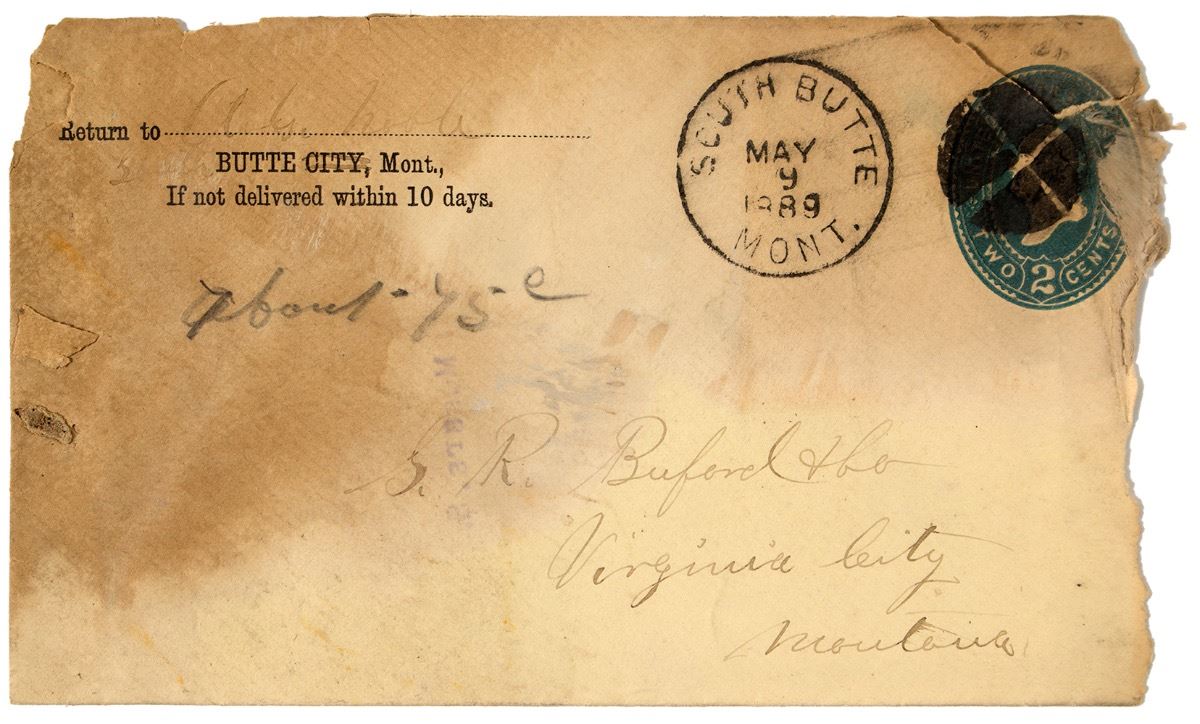 Return to
BUTTE CITY, Mont.,
If not delivered within 10 days.
SOUTH BUTTE
MAY
9
1889
MONT.
TWO 2 CENTS
About 75 c
S. R. Buford & Co
Virginia City
Montana